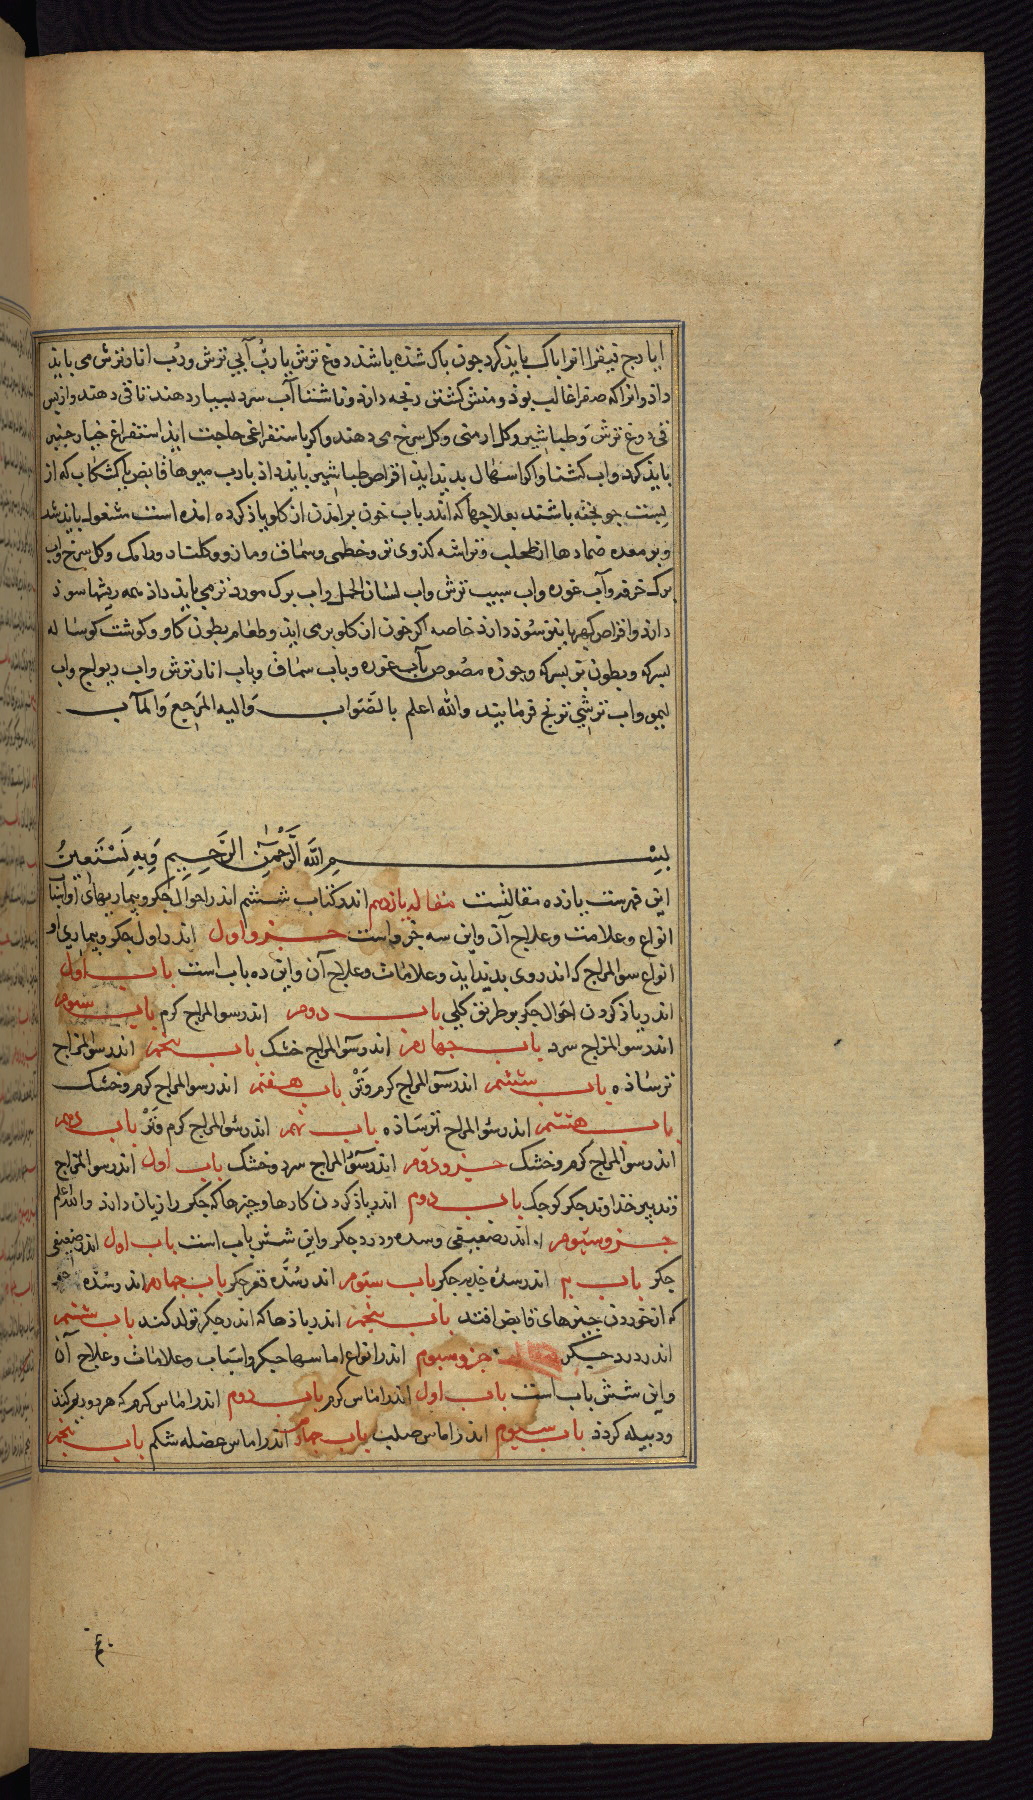 ایارج فیقرا انرا پاک باید کرد جون باک شده باشد دوغ ترش یا ربّ آبی ترش و رُب انار ترش می باید
داذ وانرا که صفرا غالب بوذ و منش کشتن رنجه دارد و ناشتا آب سرد بسیار دهند تا قی دهند و از پس
قی دوغ ترش و طباشیر و کل ارمنی و کل سرخ می دهند و اکر باستفراغی حاجت ایذ استفراغ خیار جنبر
باید کرد و اب کشنا و اکر اسهال بدید اید اقراص طباشیر باید داذ با رب میوها قابض یا کشکاب که از
بست جو بخته باشند بعلاجها که اندر باب خون برامدن از کلو یاذ کرده امده است مشغول باید شد
و بر معده ضمادها از طحلب و تراشه کدوی تر و خطمی و سماق و مازو و کلنار و رامک و کل سرخ و اب
برک خرفه و آب غوره و اب سیب ترش و اب لسان الحمل و اب برک مورد تر می باید داذ همه ریشها سوذ
دارد و اقراص کهربا نیز سوذ دارد خاصه اکر خون از کلو برمی اید و طعام بطون کاو و کوشت کوساله
بسرکه و بطون بز بسرکه و جوزه مصوص بآب غوره و باب سماق و باب انار ترش و اب ریواج و اب
لیمو و اب ترشی ترنج فرمایند والله اعلم بالصَواب وَالیه المَرجع وَالمآب
بِسْمِ اللهِ الرَّحْمٰنِ الرَّحِیمِ وَبِهِ نَسْتَعِینُ
این فهرست یازده مقالتست مقاله یازدهم اندر کتاب ششم اندر احوال جکر و بیماریهای او اسباب
انواع و علامت و علاج آن و این سه جزو است جزو اول اندر اول جکر و بیماری او
انواع سوالمزاج که اندر وی بدید اید و علامات و علاج آن و این ده باب است باب اول
اندر یاذ کردن احوال جکر بر طریق کلی باب دوم اندر سوالمزاج کرم باب سیوم
اندر سوالمزاج سرد باب جهارم اندر سوالمزاج خشک باب پنجم اندر سوالمزاج
تر ساذه باب ششم اندر سوالمزاج کرم وَتَرْ باب هفتم اندر سوالمزاج کرم و خشک
باب هشتم اندر سوالمزاج تر ساذه باب نهم اندر سوالمزاج کرم وَتَرْ باب دهم
اندر سوالمزاج کرم و خشک جزو دوم اندر سوالمزاج سرد و خشک باب اول اندر سوالمزاج
و تدبیر خداوند جکر کوجک باب دوم اندر یاذ کردن کارها و جیزها که جکر را زیان دارد والله اعلم
جزو سیوم اندر ضعیفی و سده و درد جکر و این شش باب است باب اول اندر ضعیفی
جکر باب ۲ اندر سده حدبه جکر باب سیوم اندر سُدّه قعر جکر باب جهارم اندر سُدّه جکر
که از خوردن جیزهای قابض افتد باب پنجم اندر باذها که اندر جکر تولد کند باب ششم
اندر درد جیکر جزو سیوم اندر انواع اماسها جیکر و اسباب و علامات و علاج آن
و این شش باب است باب اول اندر اماس کرم باب دوم اندر اماس کرم که هر دو ریم کند
و دبیله کردد باب سیوم اندر اماس صلب باب جهارم اندر اماس عضله شکم باب پنجم